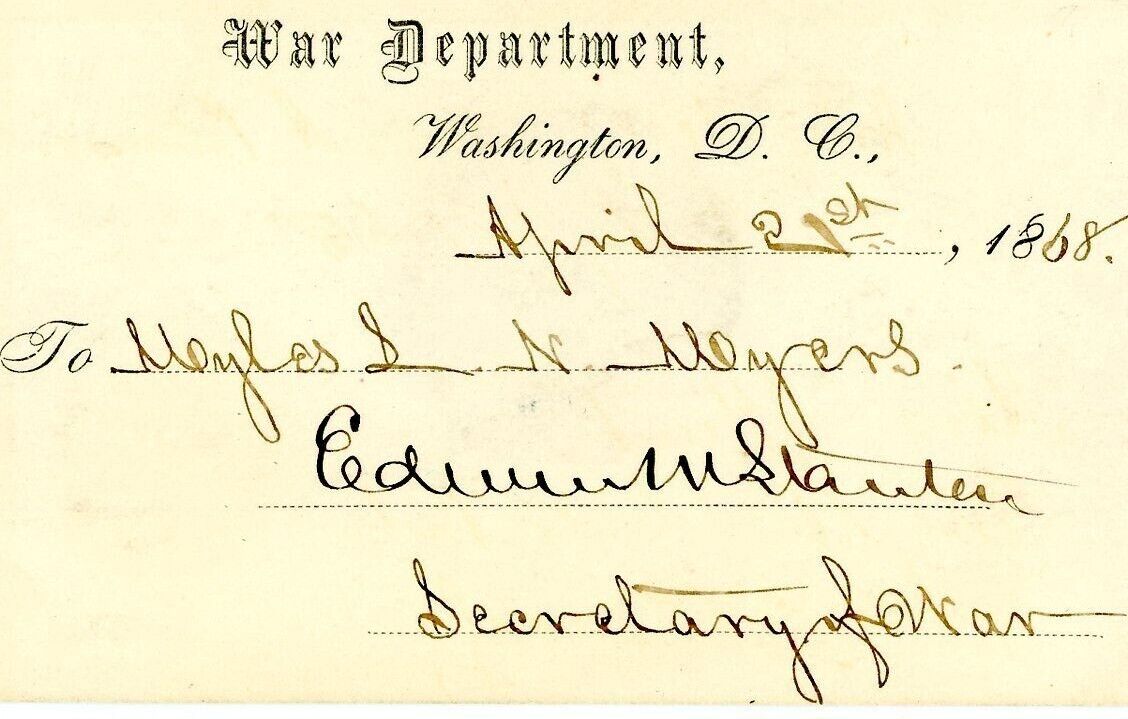 War Department,
Washington, D. C.,
April 21st, 1868.
To Myles L. N. Myers.
Edwin M Stanton
Secretary of War